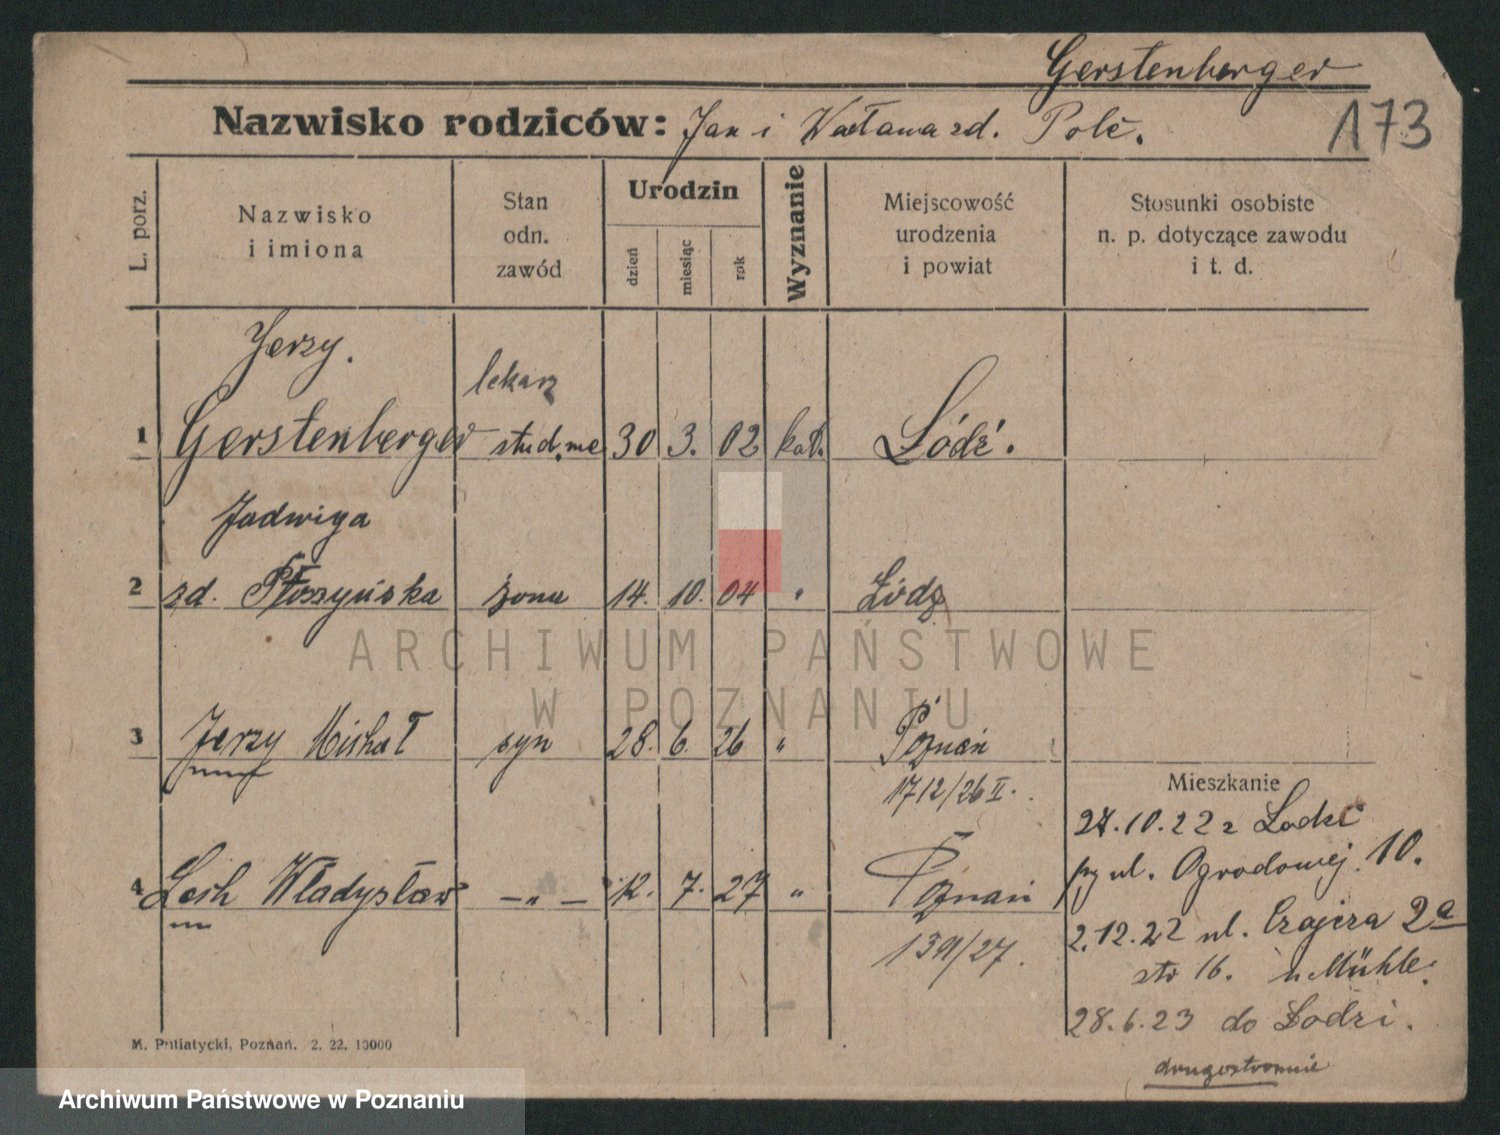 Gerstenberger
Nazwisko rodziców: Jan i Wacława zd. Polc.
173
L. porz.
Nazwisko
i imiona
Stan
odn.
zawód
Urodzin
dzień
miesiąc
rok
Wyznanie
Miejscowość
urodzenia
i powiat
Stosunki osobiste
n. p. dotyczące zawodu
i t. d.
Jerzy.
lekarz
1 Gerstenberger stud. me 30 3. 02 kat. Łódź.
Jadwiga
2 zd. Płoszyńska żona 14. 10. 04 " Łódź
3 Jerzy Michał syn 28. 6. 26 " Poznań
1712/26 II.
Mieszkanie
27.10.22 z Lodzi
4 Lech Władysław — " — 12. 7. 27 " Poznań
przy ul. Ogrodowej. 10.
139/27.
2.12.22 ul. Czajcza 2a
str 16. u Mühle.
28.6.23 do Lodzi.
drugostronnie
M. Putiatycki, Poznań. 2. 22. 10000
ARCHIWUM PAŃSTWOWE
W POZNANIU
Archiwum Państwowe w Poznaniu